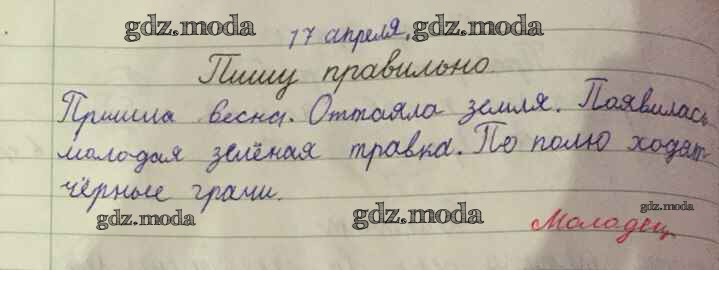 gdz.moda 17 апреля. gdz.moda
Пишу правильно.
Пришла весна. Оттаяла земля. Появилась
молодая зелёная травка. По полю ходят
чёрные грачи.
gdz.moda gdz.moda gdz.moda
Молодец